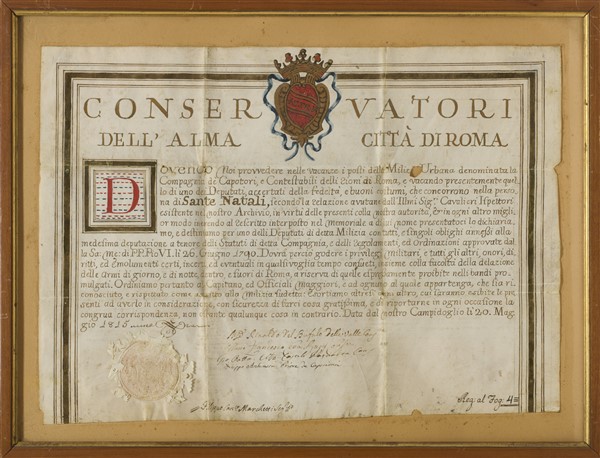 CONSERVATORI
DELL' ALMA CITTÀ DI ROMA
Dovendo Noi provvedere nelle vacanze i posti della Milizia Urbana denominata la
Compagnia di Capotori, e Contestabili delli Rioni di Roma, e vacando presentemente quel-
lo di uno de' Deputati, accertati della fedeltà, e buoni costumi, che concorrono nella perso-
na di Sante Natali, secondo la relazione avutane dall' Illmi Sigri Cavalieri Ispettori
esistente nel nostro Archivio, in virtù delle presenti colla nostra autorità, & in ogni altro migli-
or modo inerendo al decreto interposto nel memoriale a suo nome presentatoci lo dichiaria-
mo, e destiniamo per uno delli Deputati di detta Milizia con tutti, e singoli obblighi annessi alla
medesima deputazione a tenore delli Statuti di detta Compagnia, e delli Regolamenti, ed Ordinazioni approvate dal-
la Sa: me: di PP. Pio VI. li 26. Giugno 1790. Dovrà perciò godere i privilegj militari, e tutti gli altri onori, di-
ritti, ed Emolumenti certi, incerti, ed eventuali in qualsivoglia tempo consueti, insieme colla facoltà della delazione
delle Armi di giorno, e di notte dentro, e fuori di Roma, a riserva di quelle espressamente proibite nelli bandi pro-
mulgati. Ordiniamo pertanto al Capitano, ed Officiali maggiori, e ad ognuno al quale appartenga, che sia ri-
conosciuto, e rispettato come addetto alla Milizia suddetta: Esortiamo altresì ogni altro, cui saranno esibite le pre-
senti ad averlo in considerazione, con sicurezza di farci cosa gratissima, e di riportarne in ogni occasione la
congrua corrispondenza, non ostante qualunque cosa in contrario. Data dal nostro Campidoglio li 20. Mag-
gio 1815
Reg. al Fog: 43